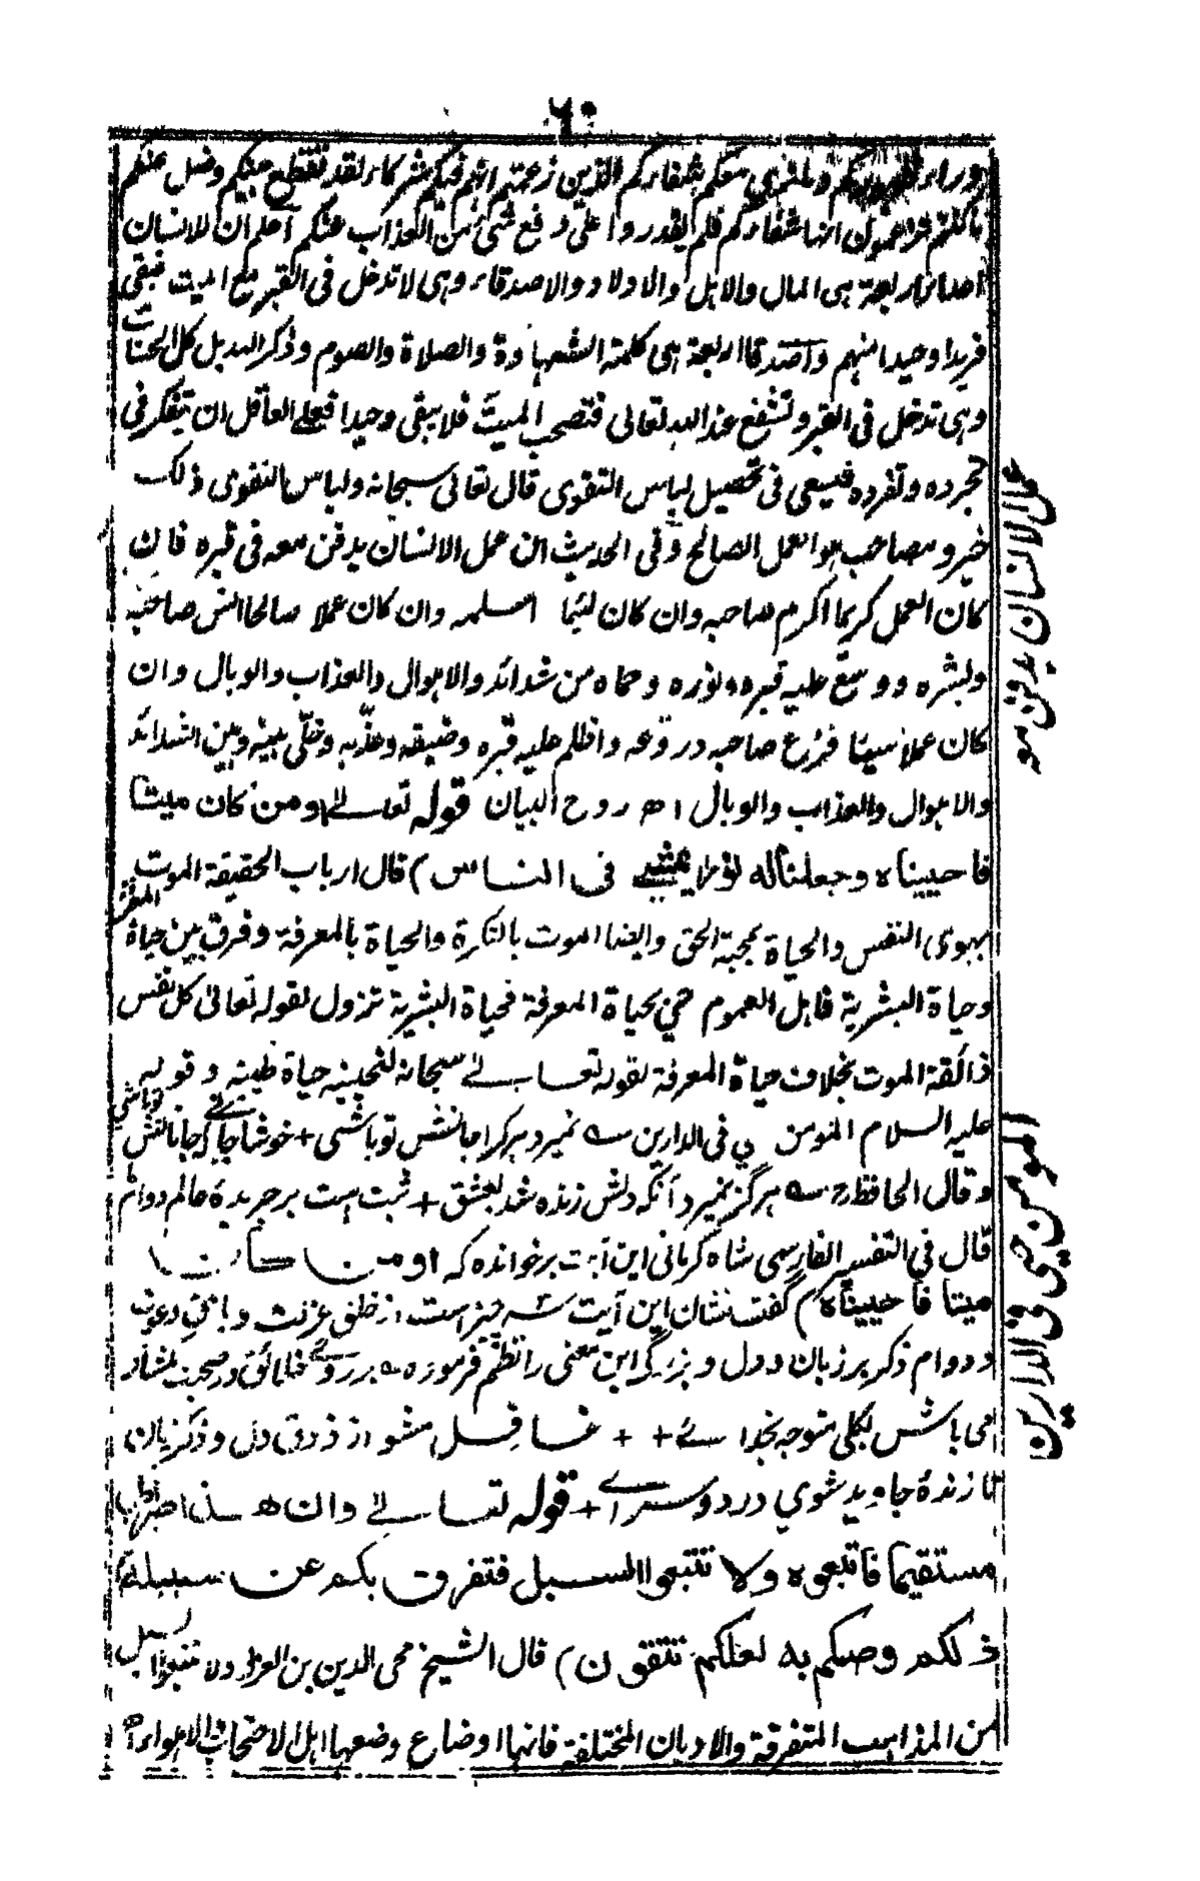 ٦٠
وراء ظهوركم وما نرى معكم شفاءكم الذين زعمتم انهم فيكم شركاء لقد تقطع بينكم وضل عنكم
ما كنتم تزعمون انها شفاءكم فلم يقدروا على دفع شئ من العذاب عنكم اعلم ان للانسان
اصدقاء اربعة هى المال والاهل والاولاد والاصدقاء وهى لا تدخل فى القبر مع الميت فيبقى
فريدا وحيدا منهم واصدقاء اربعة هى كلمة الشهادة والصلاة والصوم وذكر الله بل كل الحسنات
وهى تدخل فى القبر وتشفع عند الله تعالى فتصحب الميت فلا يبقى وحيدا فعلى العاقل ان يتفكر فى
تجرده وتفرده فيسعى فى تحصيل لباس التقوى قال تعالى سبحانه ولباس التقوى ذلك
خير ومصاحب هو العمل الصالح وفى الحديث ان عمل الانسان يدفن معه فى قبره فان
كان العمل كريما اكرم صاحبه وان كان لئيما اسلمه وان كان عملا صالحا انس صاحبه
وبشره ووسع عليه قبره ونوره وحماه من شدائد والاهوال والعذاب والوبال وان
كان عملا سيئا فزع صاحبه وروعه واظلم عليه قبره وضيقه وعذبه وخلّى بينه وبين الشدائد
والاهوال والعذاب والوبال اھ روح البيان قوله تعالى (او من كان ميتا
فاحييناه وجعلنا له نورا يمشى به فى الناس) قال ارباب الحقيقة الموت
بهوى النفس والحياة بمحبة الحق وايضا الموت بالنكرة والحياة بالمعرفة وفرق بين حياة المعرفة
وحياة البشرية فاهل العموم حى بحياة المعرفة فحياة البشرية تزول لقوله تعالى كل نفس
ذائقة الموت بخلاف حياة المعرفة لقوله تعالى سبحانه لنحيينه حياة طيبة وقوله
عليه السلام المؤمن حي فى الدارين ـــہ نميرد هركرا جانش تو باشى + خوشا جانے كه جانانش تو باشي
وقال الحافظ رح ـــہ هرگز نميرد آنكه دلش زنده شد بعشق + ثبت است بر جريدۀ عالم دوام ما
قال في التفسير الفارسى شاه كرمانى اين آيت برخوانده كه (او من كان
ميتا فاحييناه) گفت نشان اين آيت سه چيز است از خلق عزلت وبا حق دعوت
ودوام ذكر بر زبان ودل وبزرگى اين معنى را نظم فرموده ـــہ بر روے خلائق در صحبت مگشاے
مى باش بكلى متوجه بخداے + + غافل مشو از ذوق دل وذكر زبان
تا زندۀ جاويد شوي در دو سراے + قوله تعالى (وان هذا صراطى
مستقيما فاتبعوه ولا تتبعوا السبل فتفرق بكم عن سبيله
ذلكم وصيكم به لعلكم تتقون) قال الشيخ محى الدين بن العربى ولا تتبعوا السبل
من المذاهب المتفرقة والاديان المختلفة فانها اوضاع وضعها اهل الاحتجاب الاهواء اھ
عمل الانسان يدفن معه
المؤمن حي فى الدارين